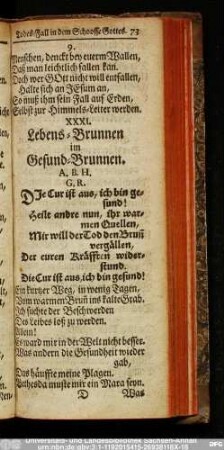 Todes-Fall in dem Schoosse Gottes. 73
9.
Menschen, denckt bey euerm Wallen,
Daß man leichtlich fallen kan.
Doch wer GOtt nicht will entfallen,
Halte sich an JEsum an,
So muß ihm sein Fall auf Erden,
Selbst zur Himmels-Leiter werden.
XXXI.
Lebens-Brunnen
im
Gesund-Brunnen.
A. B. H.
G. R.
DJe Cur ist aus, ich bin ge-
sund!
Heilt andre nun, ihr war-
men Quellen,
Mir will der Tod den Brunn
vergällen,
Der euren Kräfften wider-
stund.
Die Cur ist aus, ich bin gesund!
Ein kurtzer Weg, in wenig Tagen,
Vom warmen Brunn ins kalte Grab.
Ich suchte der Beschwerden
Des Leibes loß zu werden.
Allein!
Es ward mir in der Welt nicht besser.
Was andern die Gesundheit wieder
gab,
Das häuffte meine Plagen.
Bethesda muste mir ein Mara seyn.
D Was
Universitäts- und Landesbibliothek Sachsen-Anhalt